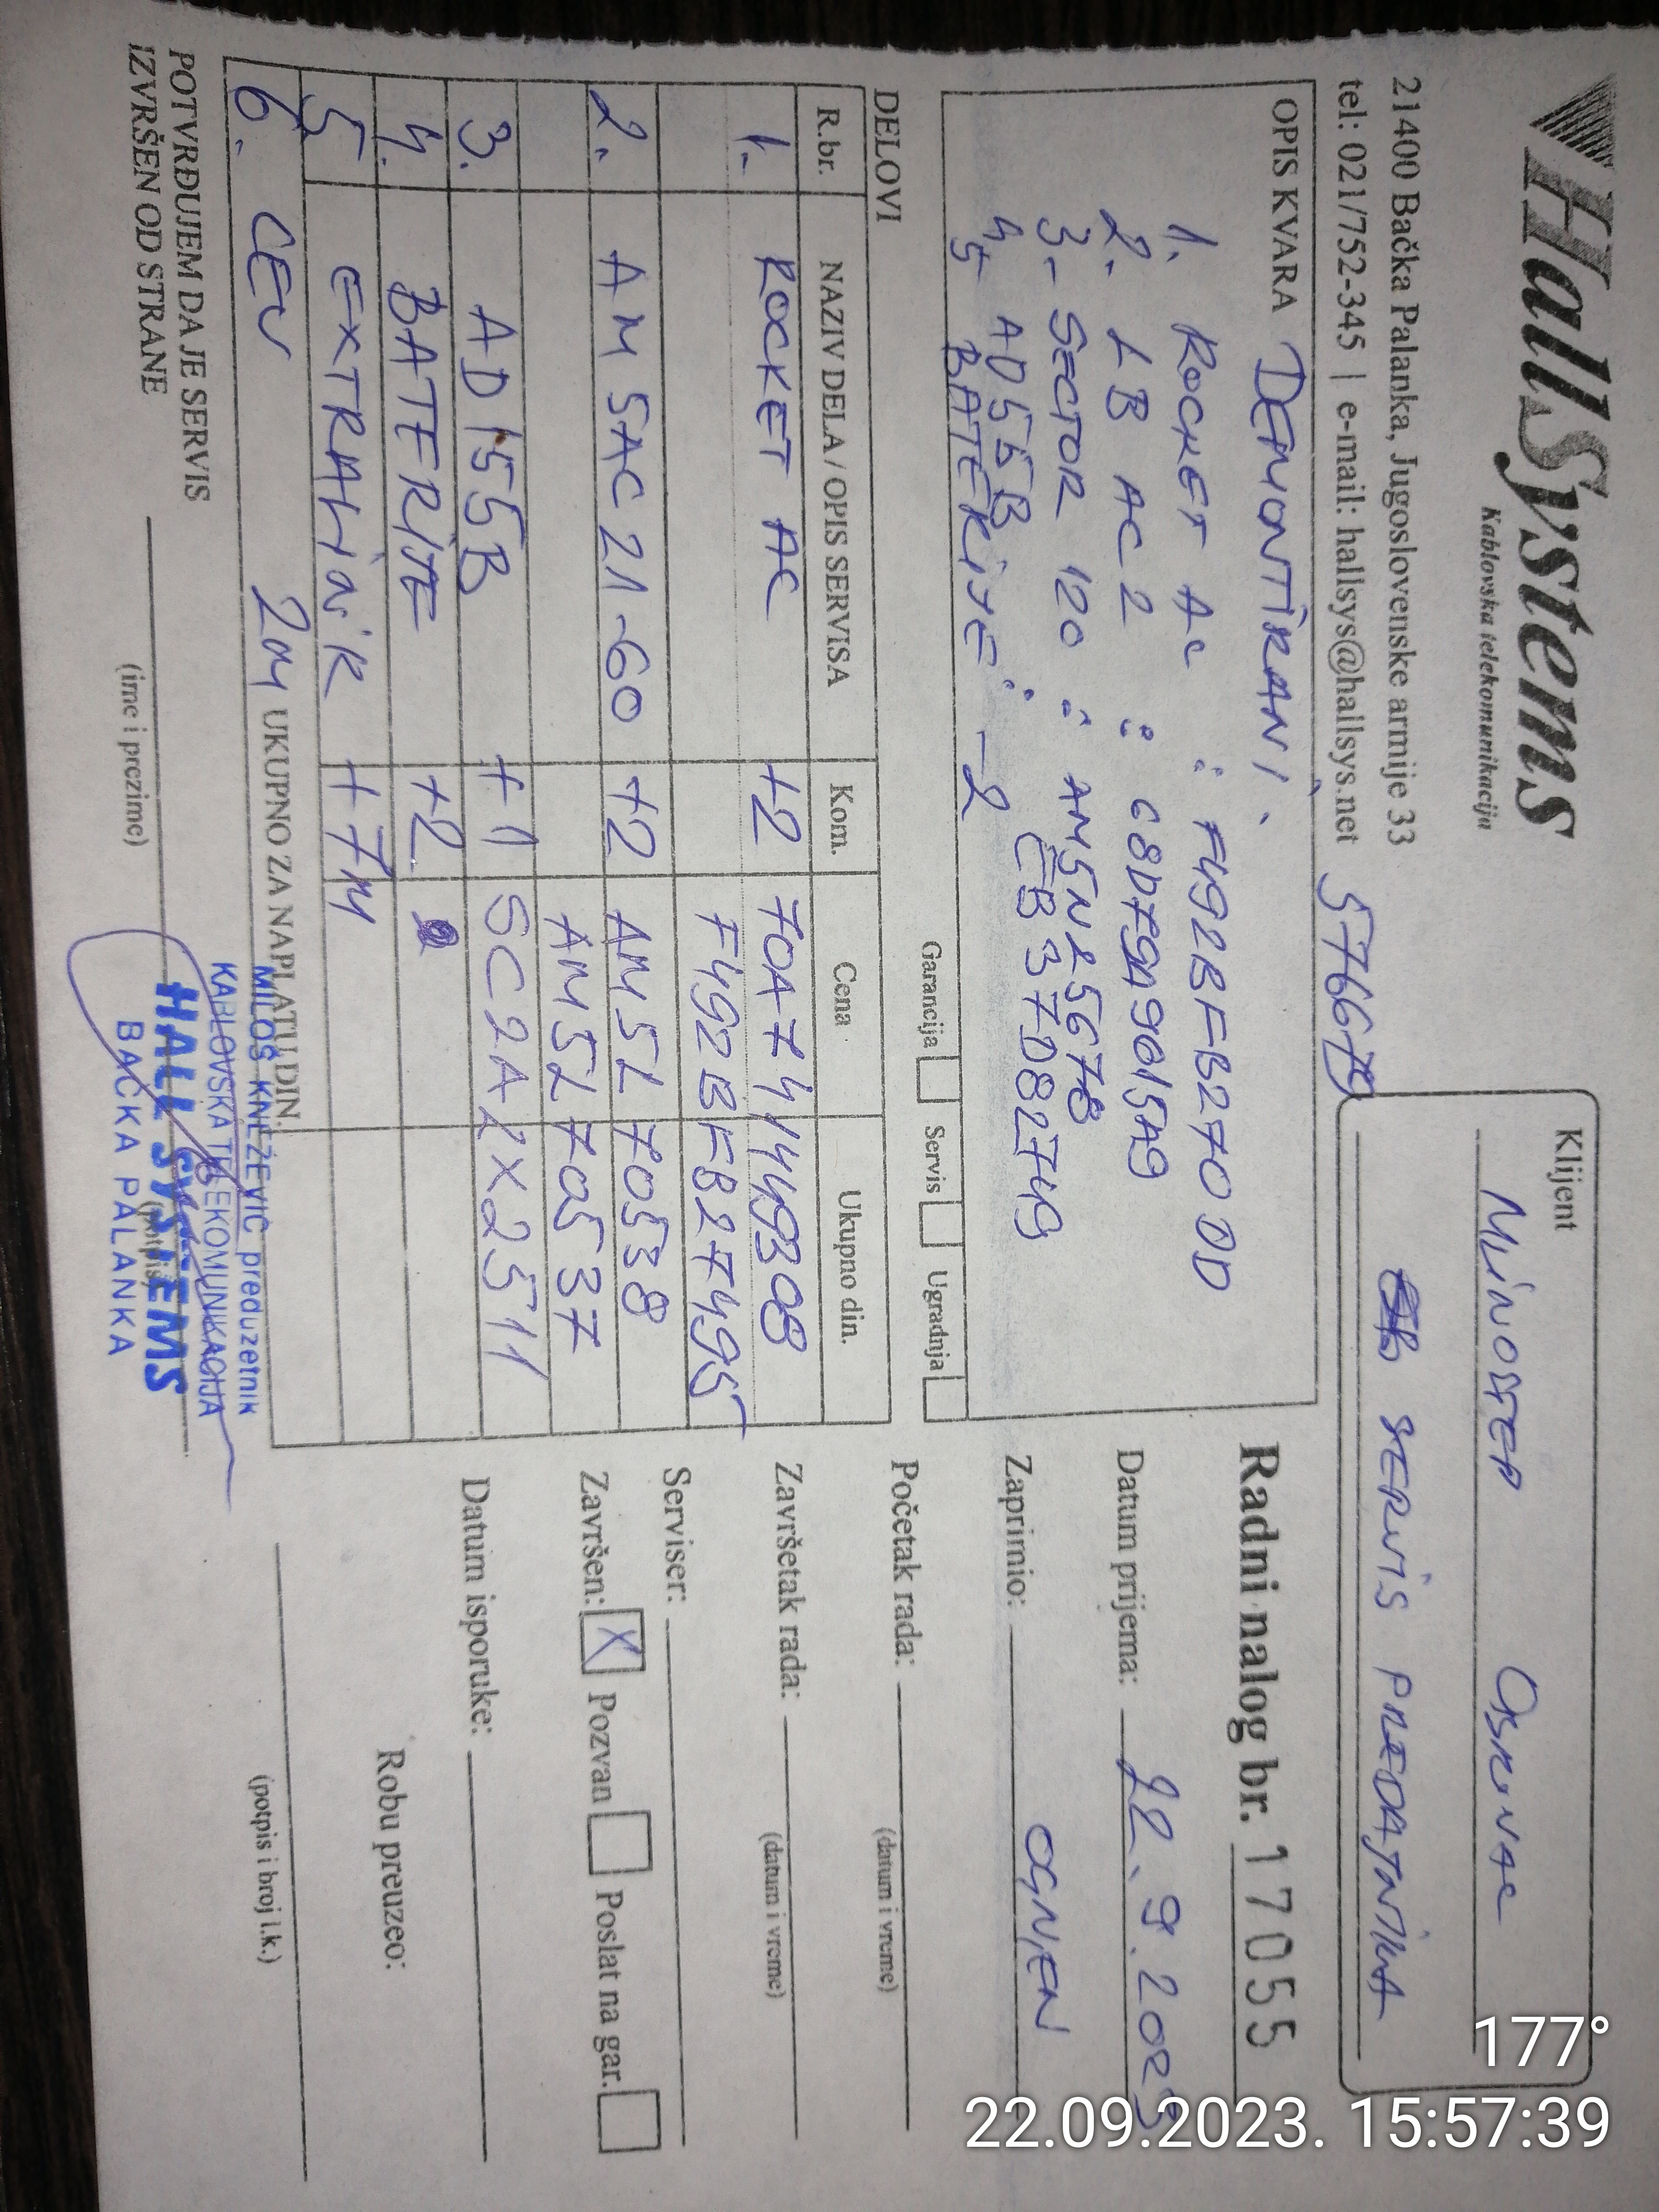 HallSystems
Kablovska telekomunikacija
21400 Bačka Palanka, Jugoslovenske armije 33
tel: 021/752-345 | e-mail: hallsys@hallsys.net
Klijent
SERVIS PREDAJNIKA
OPIS KVARA DEMONTIRANI.
1. ROCKET AC : F492BFB270DD
2. LB AC 2 :
3- SECTOR 120 : AM5NL5678
4, AD55B CB37D82749
5- BATERIJE : -2
Garancija Servis Ugradnja
Radni nalog br. 17055
Datum prijema: 22.9.2023
Zaprimio: OGNJEN
Početak rada:
(datum i vreme)
Završetak rada:
(datum i vreme)
Serviser:
Završen: X Pozvan Poslat na gar.
Datum isporuke:
Robu preuzeo:
(potpis i broj l.k.)
DELOVI
R.br. NAZIV DELA / OPIS SERVISA Kom. Cena Ukupno din.
1. ROCKET AC +2
F492BFB27495
2. AM 5AC 21-60 +2 AM5L70538
AM5L70537
3. AD155B +1 SC2A2X2511
4. BATERIJE +2
5 EXTRALINK +7M
6. CEV 2M
UKUPNO ZA NAPLATU DIN.
POTVRĐUJEM DA JE SERVIS
IZVRŠEN OD STRANE
(ime i prezime)
(potpis)
MILOŠ KNEŽEVIĆ preduzetnik
KABLOVSKA TELEKOMUNIKACIJA
HALL SYSTEMS
BAČKA PALANKA
177°
22.09.2023. 15:57:39